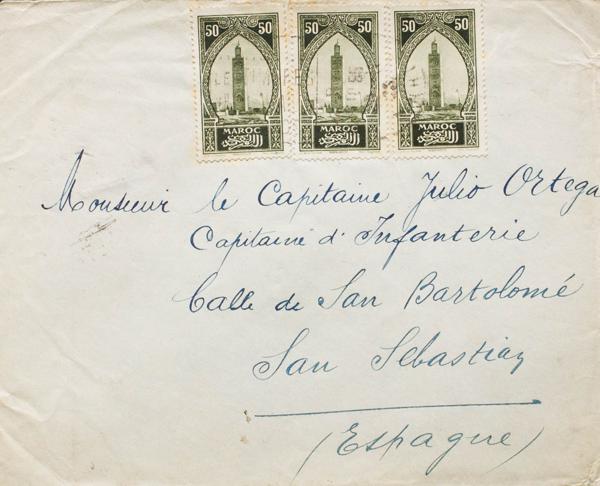 50 50 50 50 50 50
MAROC MAROC MAROC
Monsieur le Capitaine Julio Ortega
Capitaine d'Infanterie
Calle de San Bartolomé
San Sebastian
(Espagne)